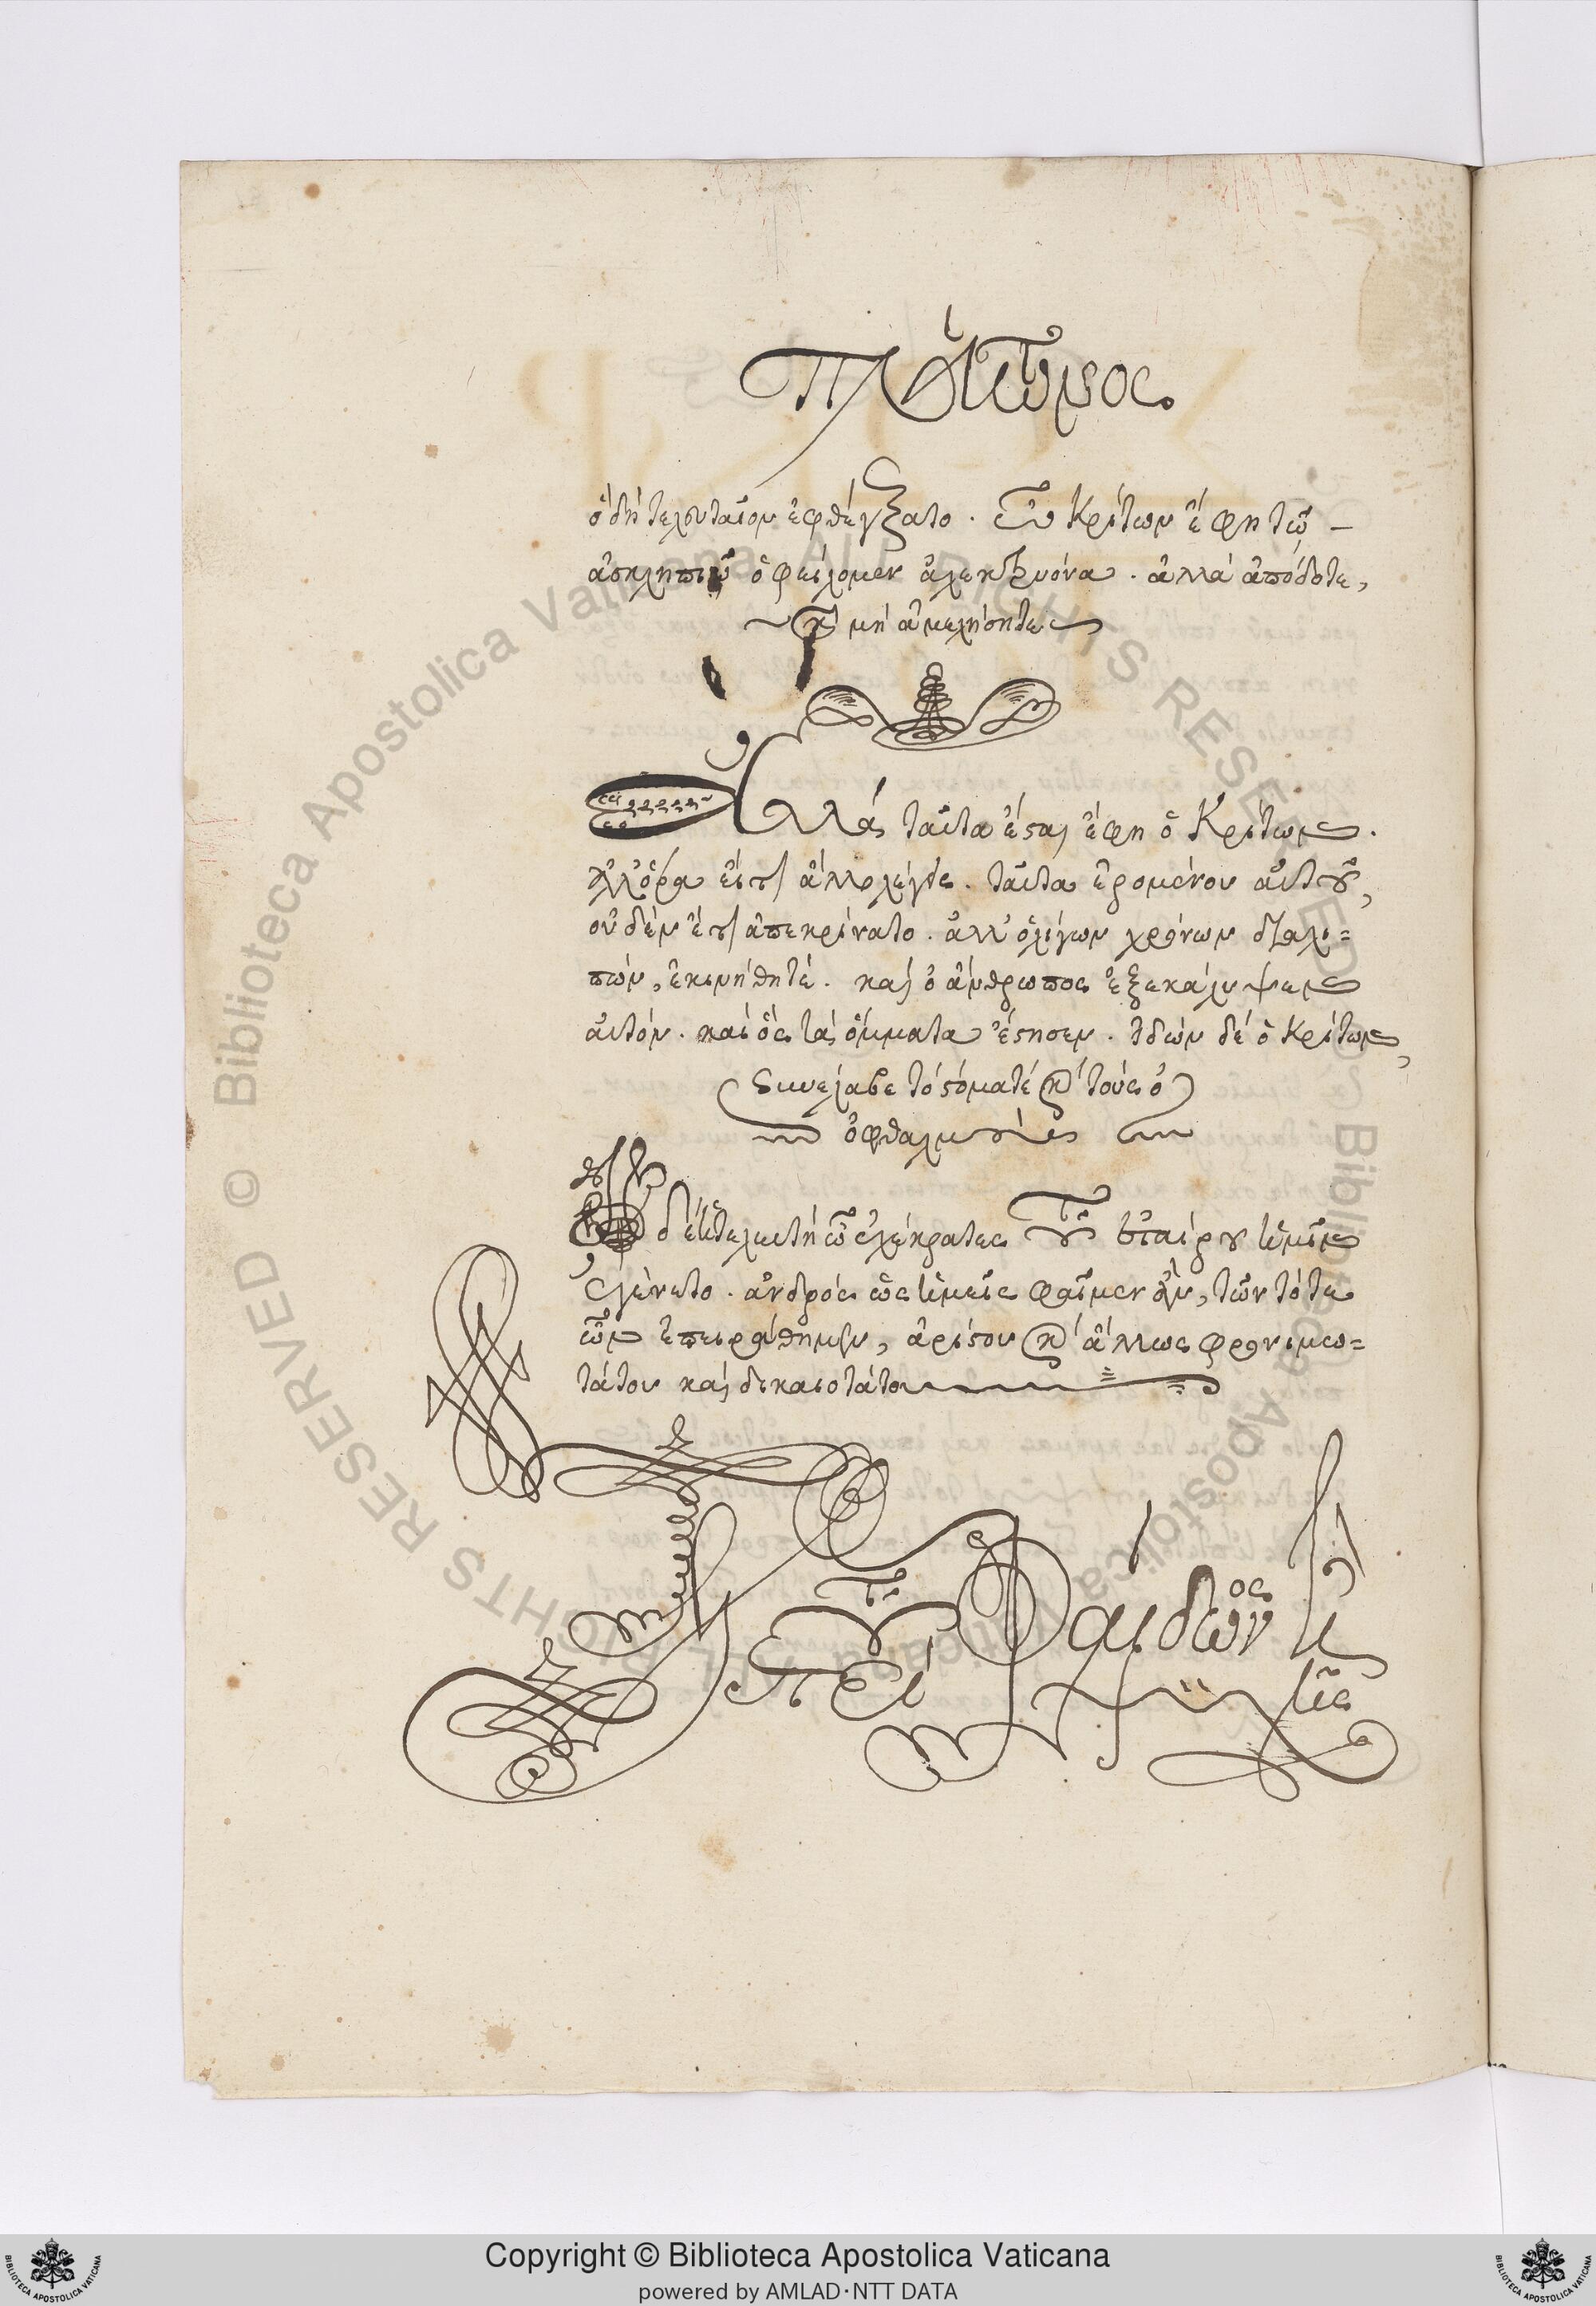 Πλάτωνος.
ὁ δὴ τελευταῖον ἐφθέγξατο. ὦ Κρίτων ἔφη τῶ
ἀσκληπιῶ ὀφείλομεν ἀλεκτρυόνα. ἀλλὰ ἀπόδοτε,
καὶ μὴ ἀμελήσητε
Ἀλλὰ ταῦτα ἔσται ἔφη ὁ Κρίτων.
ἀλλ' ὅρα εἴ τι ἄλλο λέγεις. ταῦτα ἐρομένου αὐτοῦ,
οὐδὲν ἔτι ἀπεκρίνατο. ἀλλ' ὀλίγων χρόνων διαλι=
πών, ἐκινήθη τέ. καὶ ὁ ἄνθρωπος ἐξεκάλυψεν
αὐτόν. καὶ ὃς τὰ ὄμματα ἔστησεν. ἰδὼν δὲ ὁ Κρίτων,
συνέλαβε τὸ στόμα τὲ καὶ τοὺς ὀ
ὀφθαλμούς
δὲ ἡ τελευτὴ ὦ ἐχέκρατες τοῦ ἑταίρου ἡμῖν
ἐγένετο. ἀνδρός ὡς ἡμεῖς φαῖμεν ἂν, τῶν τότε
ὧν ἐπειράθημεν, ἀρίστου καὶ ἄλλως φρονιμω=
τάτου καὶ δικαιοτάτου
Τοῦ Φαίδωνος ἢ
περὶ ψυχῆς
Copyright © Biblioteca Apostolica Vaticana
powered by AMLAD·NTT DATA